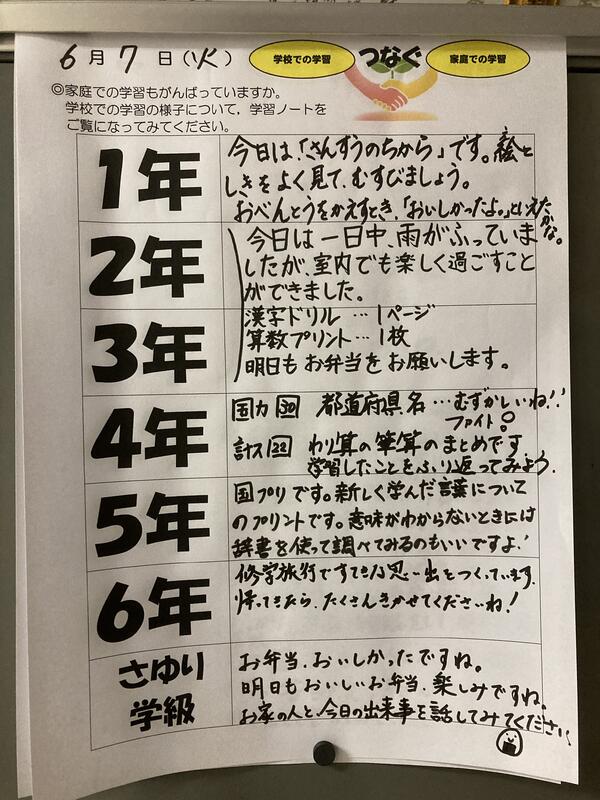 6月7日(火)
学校での学習
つなぐ
家庭での学習
◎家庭での学習もがんばっていますか。
学校での学習の様子について，学習ノートを
ご覧になってみてください。
1年
今日は、「さんすうのちから」です。絵と
しきをよく見て、むすびましょう。
おべんとうをかえすとき、「おいしかったよ。」といえたかな。
2年
3年
今日は一日中、雨がふっていま
したが、室内でも楽しく過ごすこと
ができました。
漢字ドリル…1ページ
算数プリント…1枚
明日もお弁当をお願いします。
4年
国力30 都道府県名…むずかしいね!!
ファイト!
計ス22 わり算の筆算のまとめです
学習したことをふり返ってみよう.
5年
国プリです。新しく学んだ言葉について
のプリントです。意味がわからないときには
辞書を使って調べてみるのもいいですよ!
6年
修学旅行ですてきな思い出をつくっています.
帰ってきたら、たくさんきかせてくださいね!
さゆり
学級
お弁当、おいしかったですね。
明日もおいしいお弁当、楽しみですね。
お家の人と今日の出来事を話してみてください